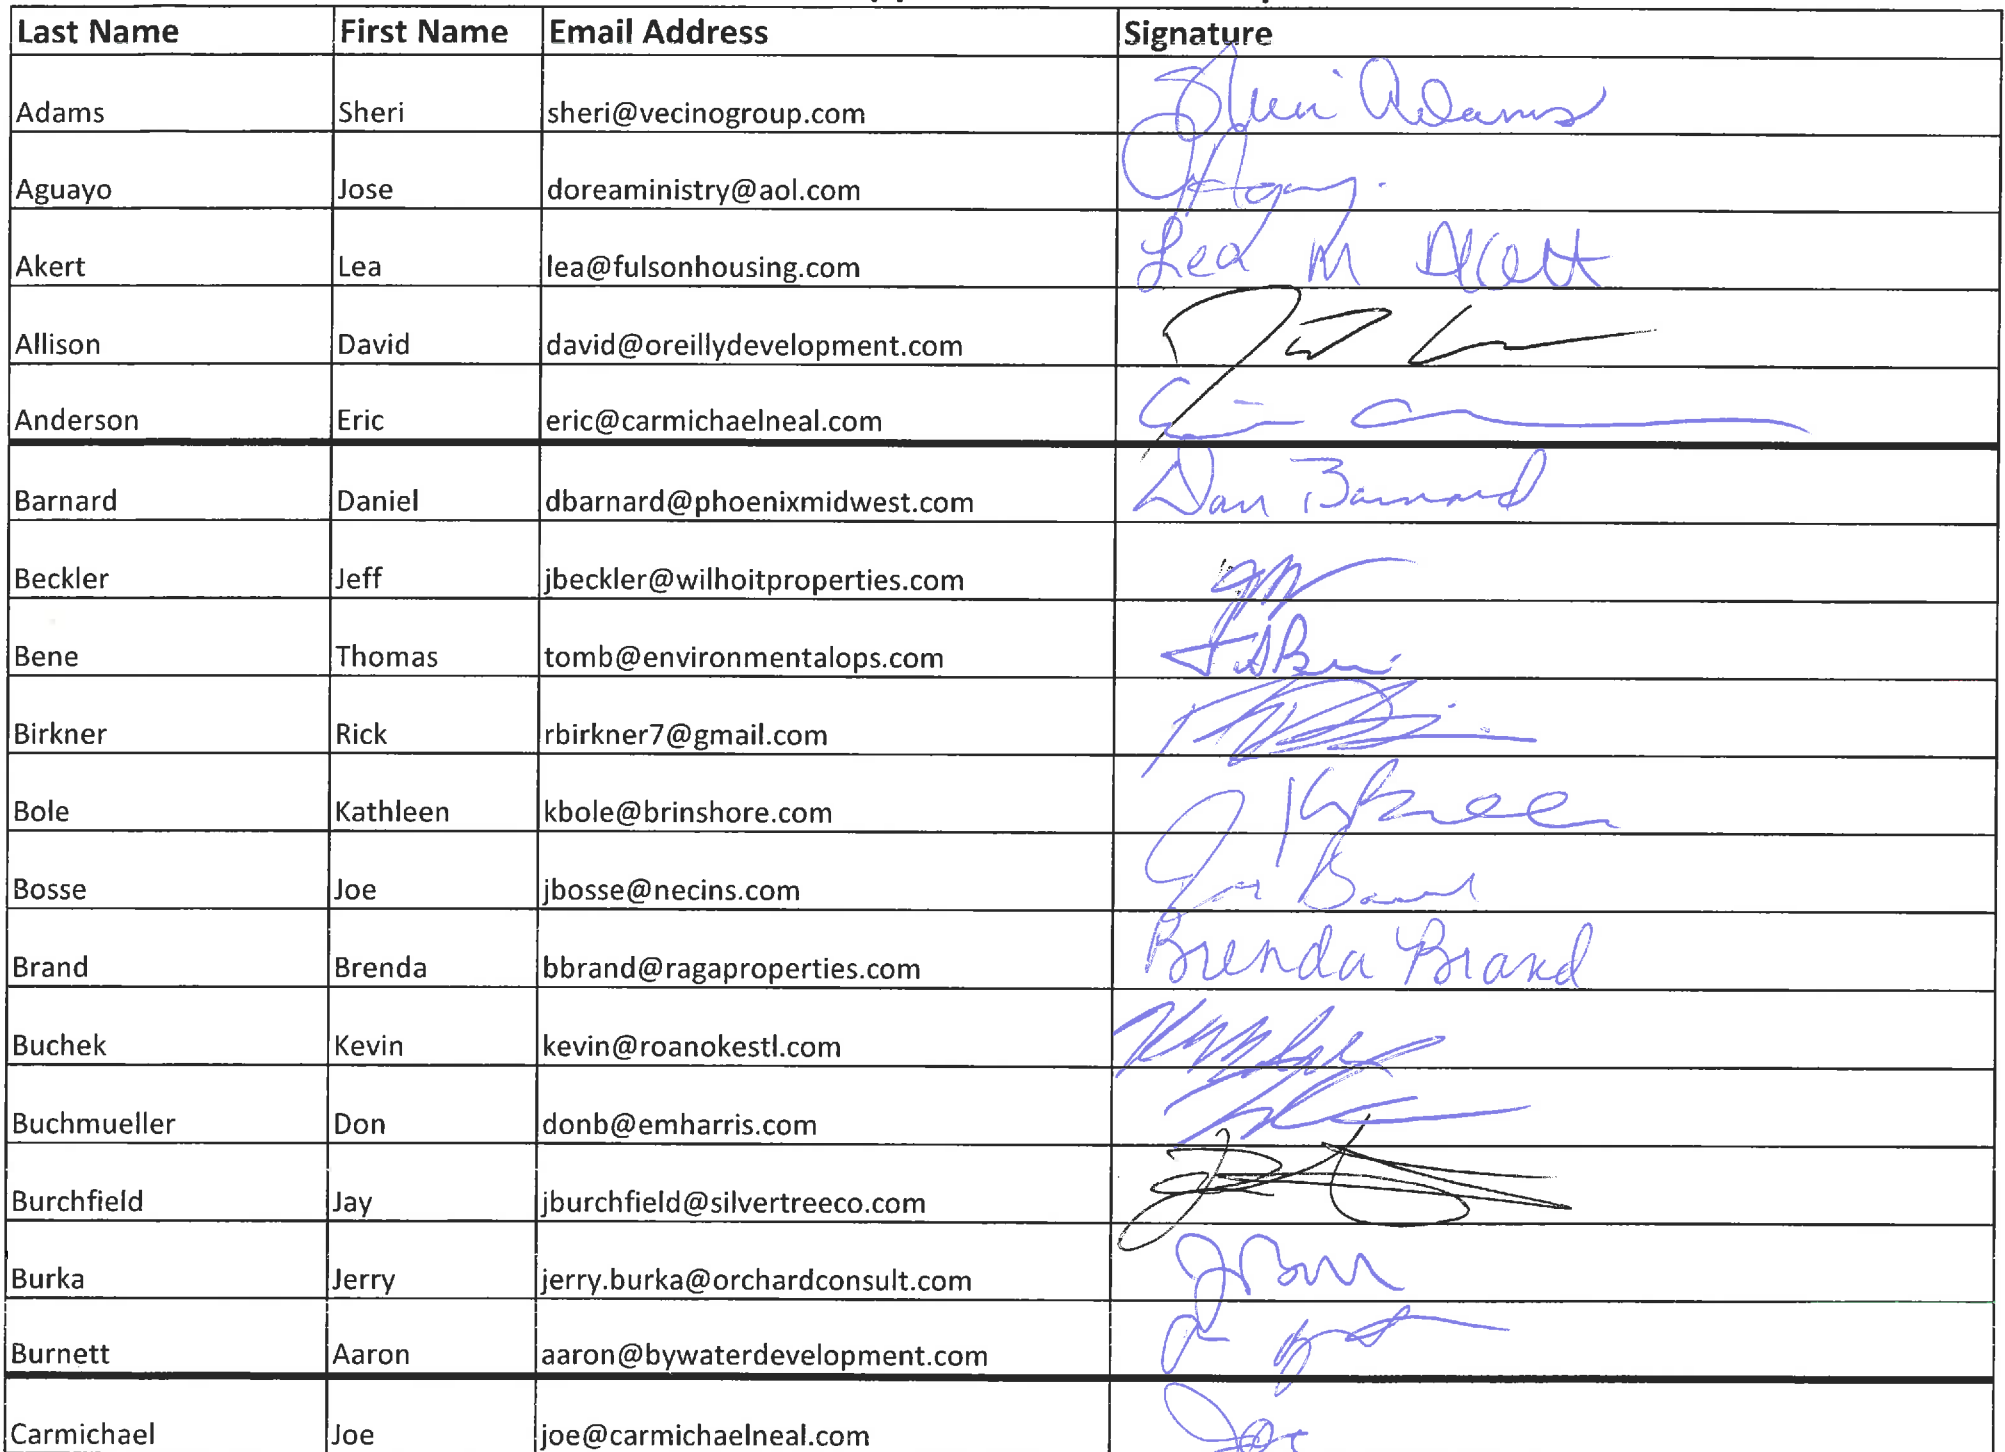 Last Name First Name Email Address Signature
Adams Sheri sheri@vecinogroup.com Sheri Adams
Aguayo Jose doreaministry@aol.com
Akert Lea lea@fulsonhousing.com Lea M Akert
Allison David david@oreillydevelopment.com
Anderson Eric eric@carmichaelneal.com
Barnard Daniel dbarnard@phoenixmidwest.com Dan Barnard
Beckler Jeff jbeckler@wilhoitproperties.com
Bene Thomas tomb@environmentalops.com
Birkner Rick rbirkner7@gmail.com
Bole Kathleen kbole@brinshore.com
Bosse Joe jbosse@necins.com
Brand Brenda bbrand@ragaproperties.com Brenda Brand
Buchek Kevin kevin@roanokestl.com
Buchmueller Don donb@emharris.com
Burchfield Jay jburchfield@silvertreeco.com
Burka Jerry jerry.burka@orchardconsult.com
Burnett Aaron aaron@bywaterdevelopment.com
Carmichael Joe joe@carmichaelneal.com Joe